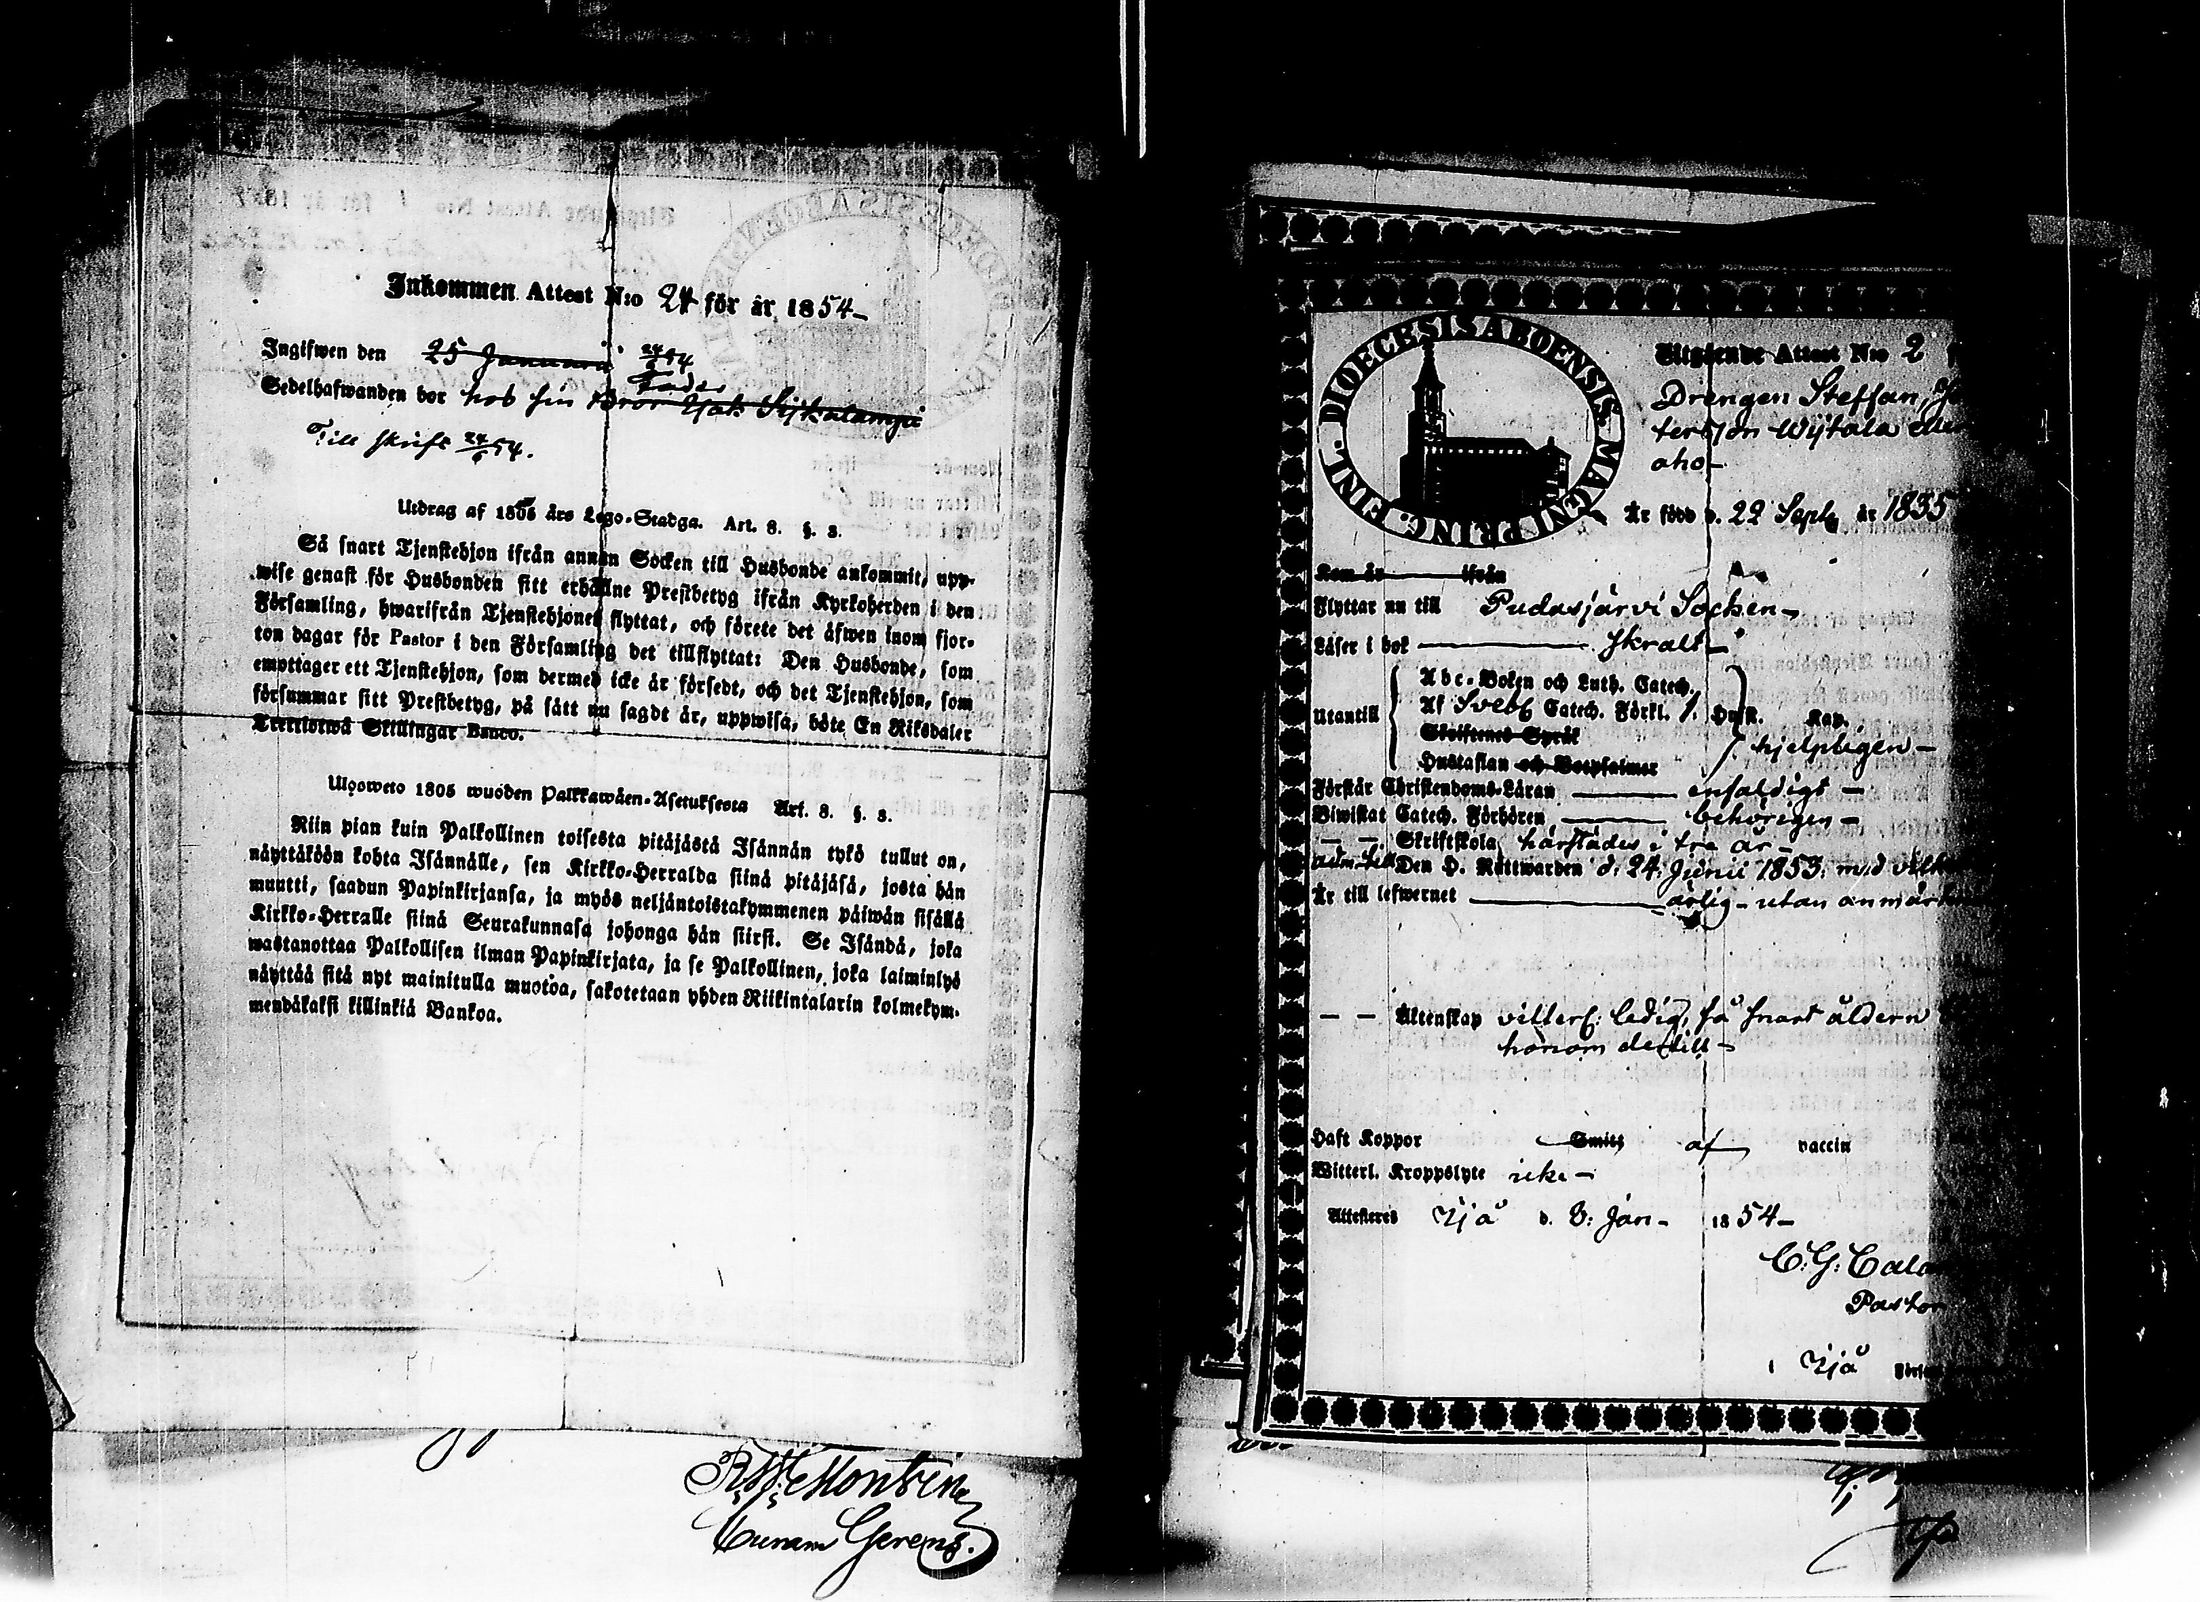 Inkommen Attest N:o 24 för år 1854-
Ingifwen den 25 Januarii 24/6 54
Fader
Sedelhafwanden bor hos sin Bror
Till skrift 24/6 54.
Utdrag af 1805 års Lego-Stadga. Art. 8. §. 3.
Så snart Tjenstehjon ifrån annan Socken till Husbonde ankommit, upp-
wise genast för Husbonden sitt erhållne Prestbetyg ifrån Kyrkoherden i den
Församling, hwarifrån Tjenstehjonet flyttat, och förete det äfwen inom fjor-
ton dagar för Pastor i den Församling det tillflyttat: Den Husbonde, som
emottager ett Tjenstehjon, som dermed icke är försedt, och det Tjenstehjon, som
försummar sitt Prestbetyg, på sätt nu sagdt är, uppwisa, böte En Riksdaler
Trettiotwå Skillingar Banco.
Ulosweto 1805 wuoden Palkkawäen-Asetuksesta Art. 8. §. 3.
Niin pian kuin Palkollinen toisesta pitäjästä Isännän tykö tullut on,
näyttäköön kohta Isännälle, sen Kirkko-Herralda siinä pitäjäsä, josta hän
muutti, saadun Papinkirjansa, ja myös neljäntoistakymmenen päiwän sisällä
Kirkko-Herralle siinä Seurakunnasa johonga hän siirsi. Se Isändä, joka
wastanottaa Palkollisen ilman Papinkirjata, ja se Palkollinen, joka laiminlyö
näyttää sitä nyt mainitulla muotoa, sakotetaan yhden Riikintalarin kolmekym-
mendäkaksi killinkiä Bankoa.
DIOECESIS ABOENSIS. MAGNI PRINC. FINL.
Utgående Attest N:o 2
Drengen Steffan,
aho-
Är född d. 22 Sept. år 1835
Kom år ifrån
Flyttar nu till Pudasjärvi Socken-
Läser i bok skralt-
Utantill
Abc-Boken och Luth. Catech.
Af Sveb. Catech. Förkl. Hust. Kap.
Skriftenes Språk
hjelpligen-
Hustaflan och Botpsalmer
Förstår Christendoms-Läran enfaldigt-
Biwistat Catech. Förhören behörigen-
- - Skriftskola härstädes i tre år-
adm. till Den H. Nattwarden d. 24. Junii 1853. med
Är till lefwernet ärlig- utan
- - Äktenskap vitterl: ledig, så snart åldern
honom dertill-
Haft Koppor Smitt af vaccin
Witterl. Kroppslyte icke-
Attesteras Ijå d. 8: Jan- 1854-
C. G.
Pastor
i Ijå